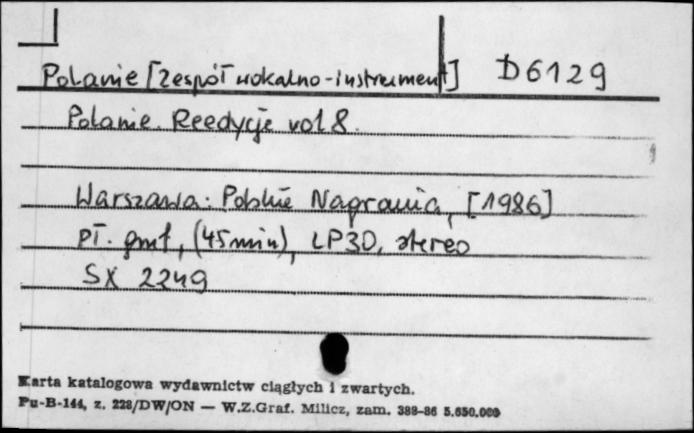 Polanie [zespół wokalno-instrument] D6129
Polanie. Reedycje vol 8.
Warszawa: Polskie Nagrania, [1986]
pł. gmf, (45 min), LP30, stereo
SX 2249
Karta katalogowa wydawnictw ciągłych i zwartych.
Pu-B-144, z. 228/DW/ON — W.Z.Graf. Milicz, zam. 388-86 5.650.000